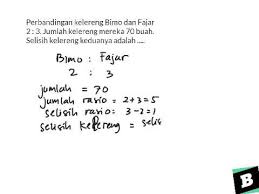 Perbandingan kelereng Bimo dan Fajar
2 : 3. Jumlah kelereng mereka 70 buah.
Selisih kelereng keduanya adalah ....
Bimo : Fajar
2 : 3
jumlah = 70
jumlah rasio = 2+3=5
selisih rasio = 3-2=1
selisih kelereng = selis
B